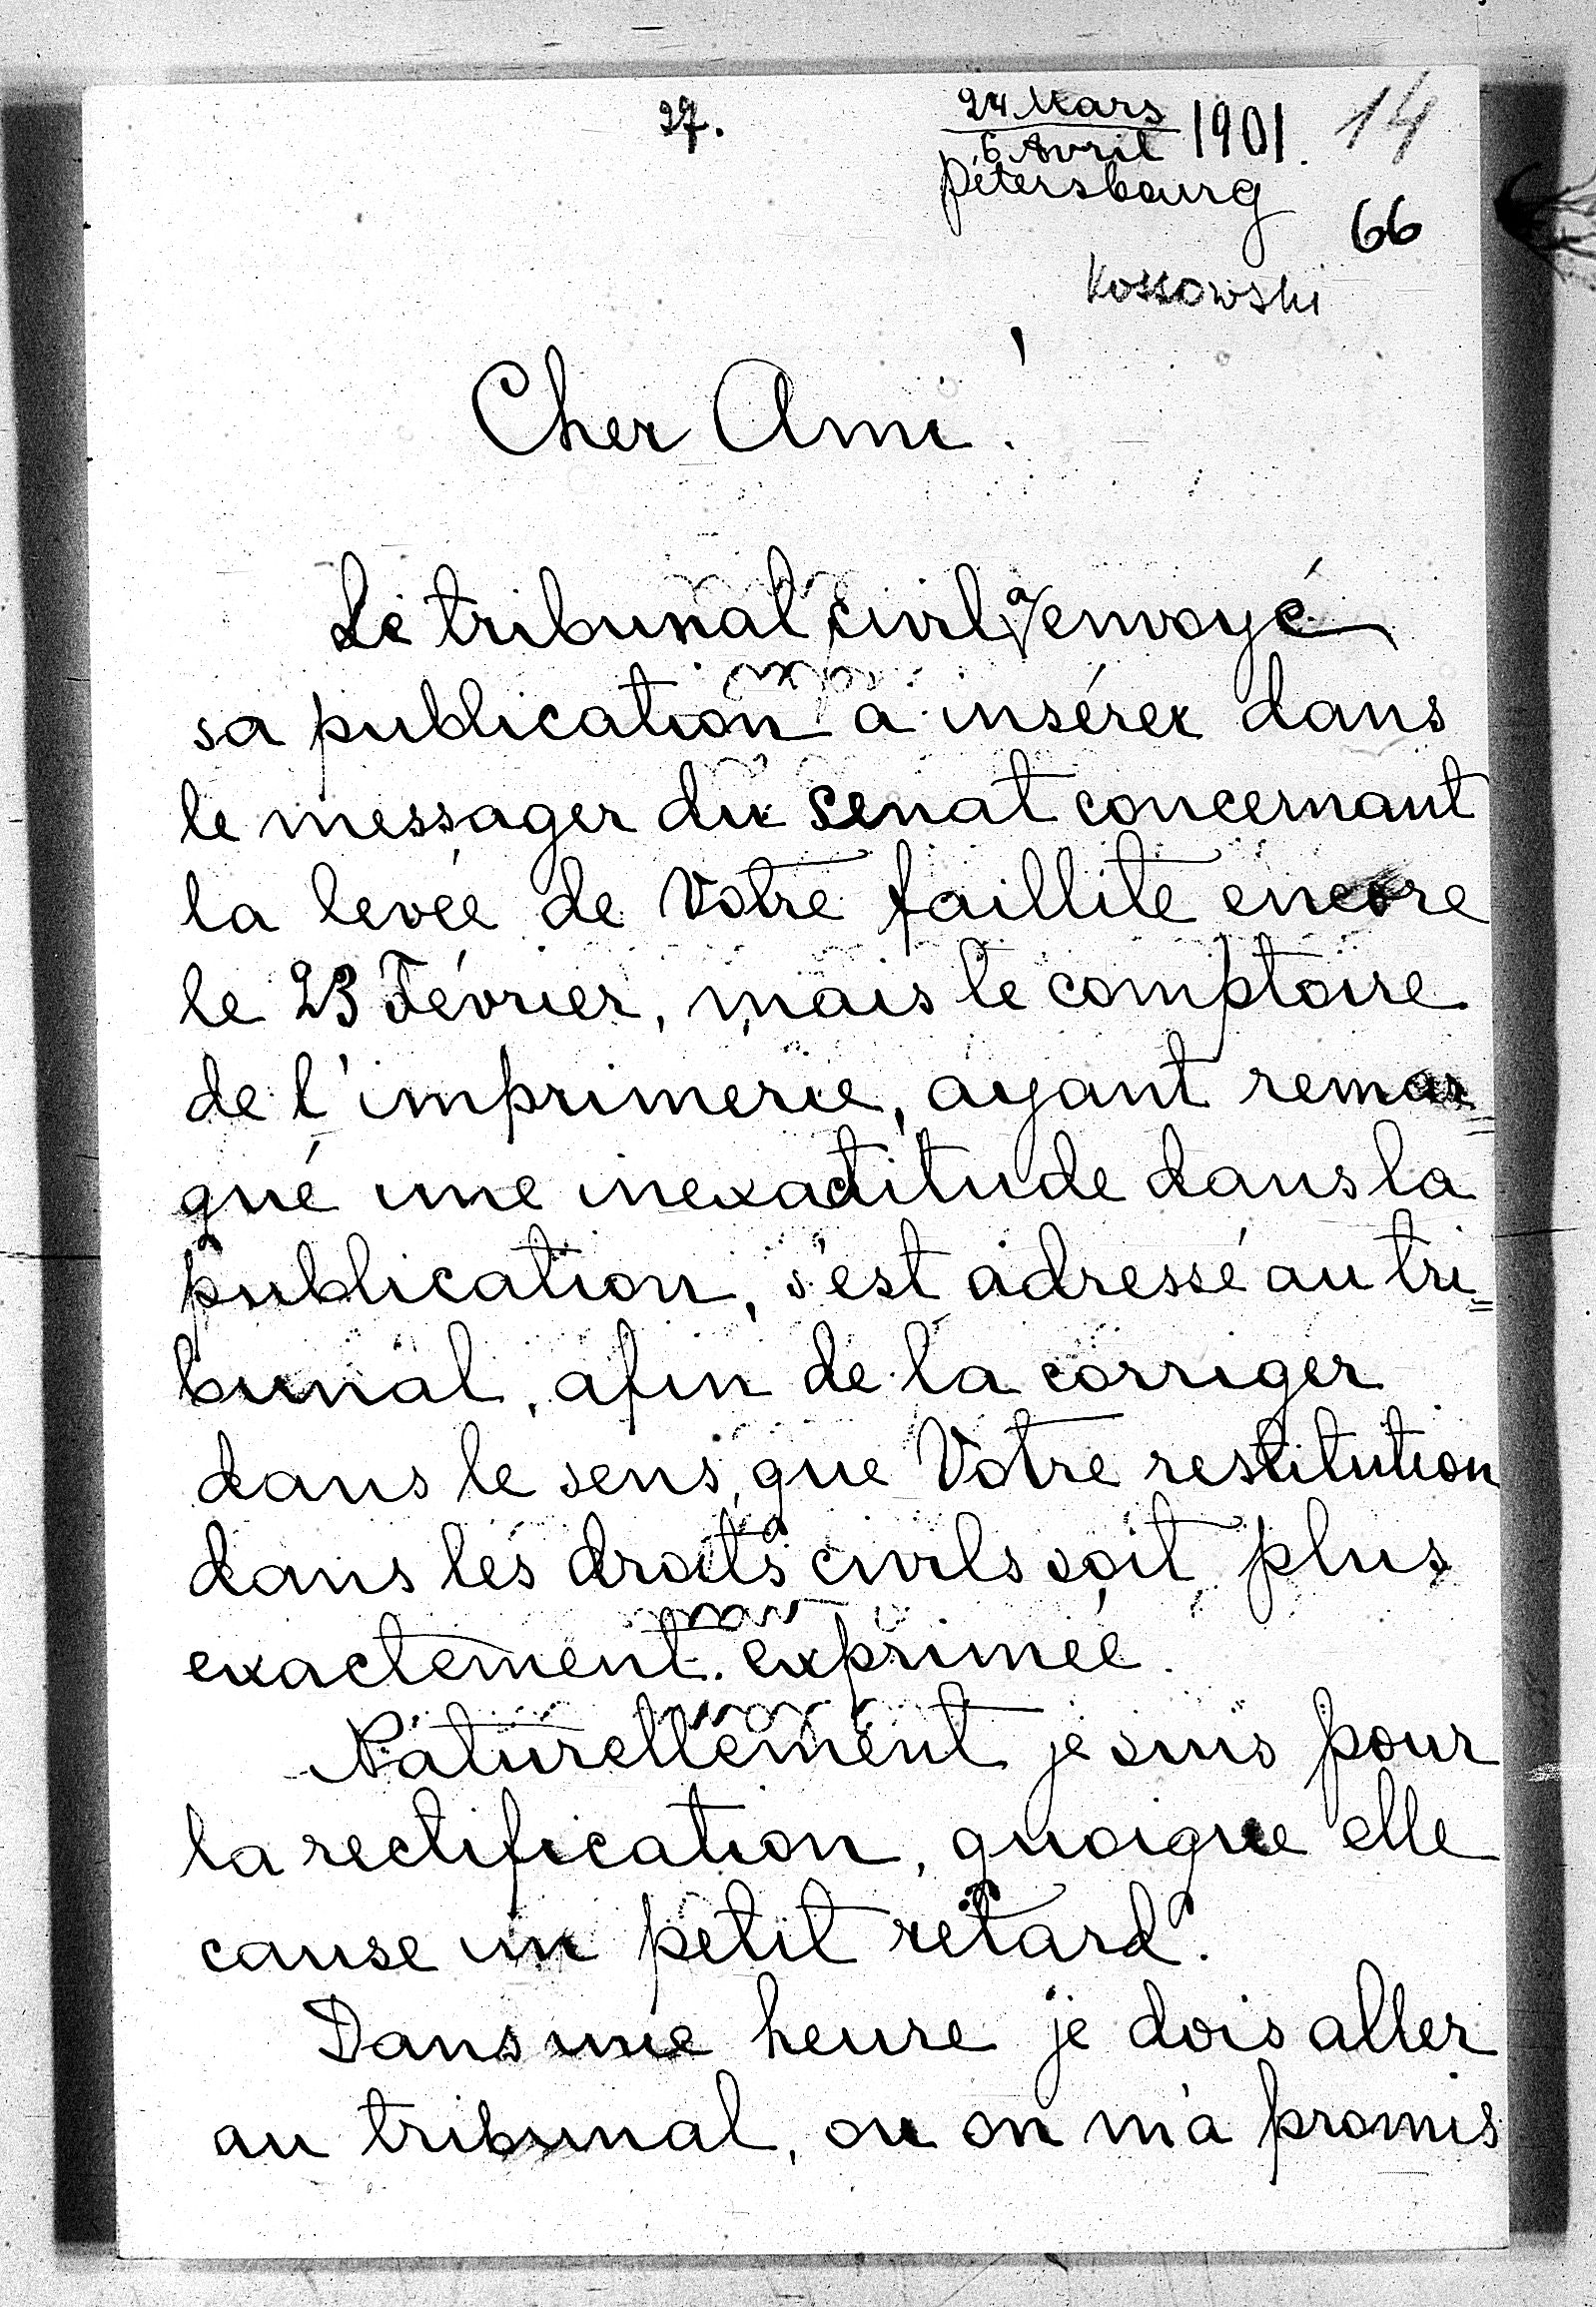 27.
24 Mars
6 Avril 1901. 14
Pétersbourg
66
Kossowski
Cher Ami!
Le tribunal civil a envoyé
sa publication a insérer dans
le messager du Senat concernant
la levée de Votre faillite encore
le 23 Février, mais le comptoire
de l'imprimerie, ayant remar=
qué une inexactitude dans la
publication, s'est adressé au tri=
bunal, afin de la corriger
dans le sens, que Votre restitution
dans les droits civils soit plus
exactement exprimée.
Naturellement je suis pour
la rectification, quoique elle
cause un petit retard.
Dans une heure je dois aller
au tribunal, ou on m'a promis